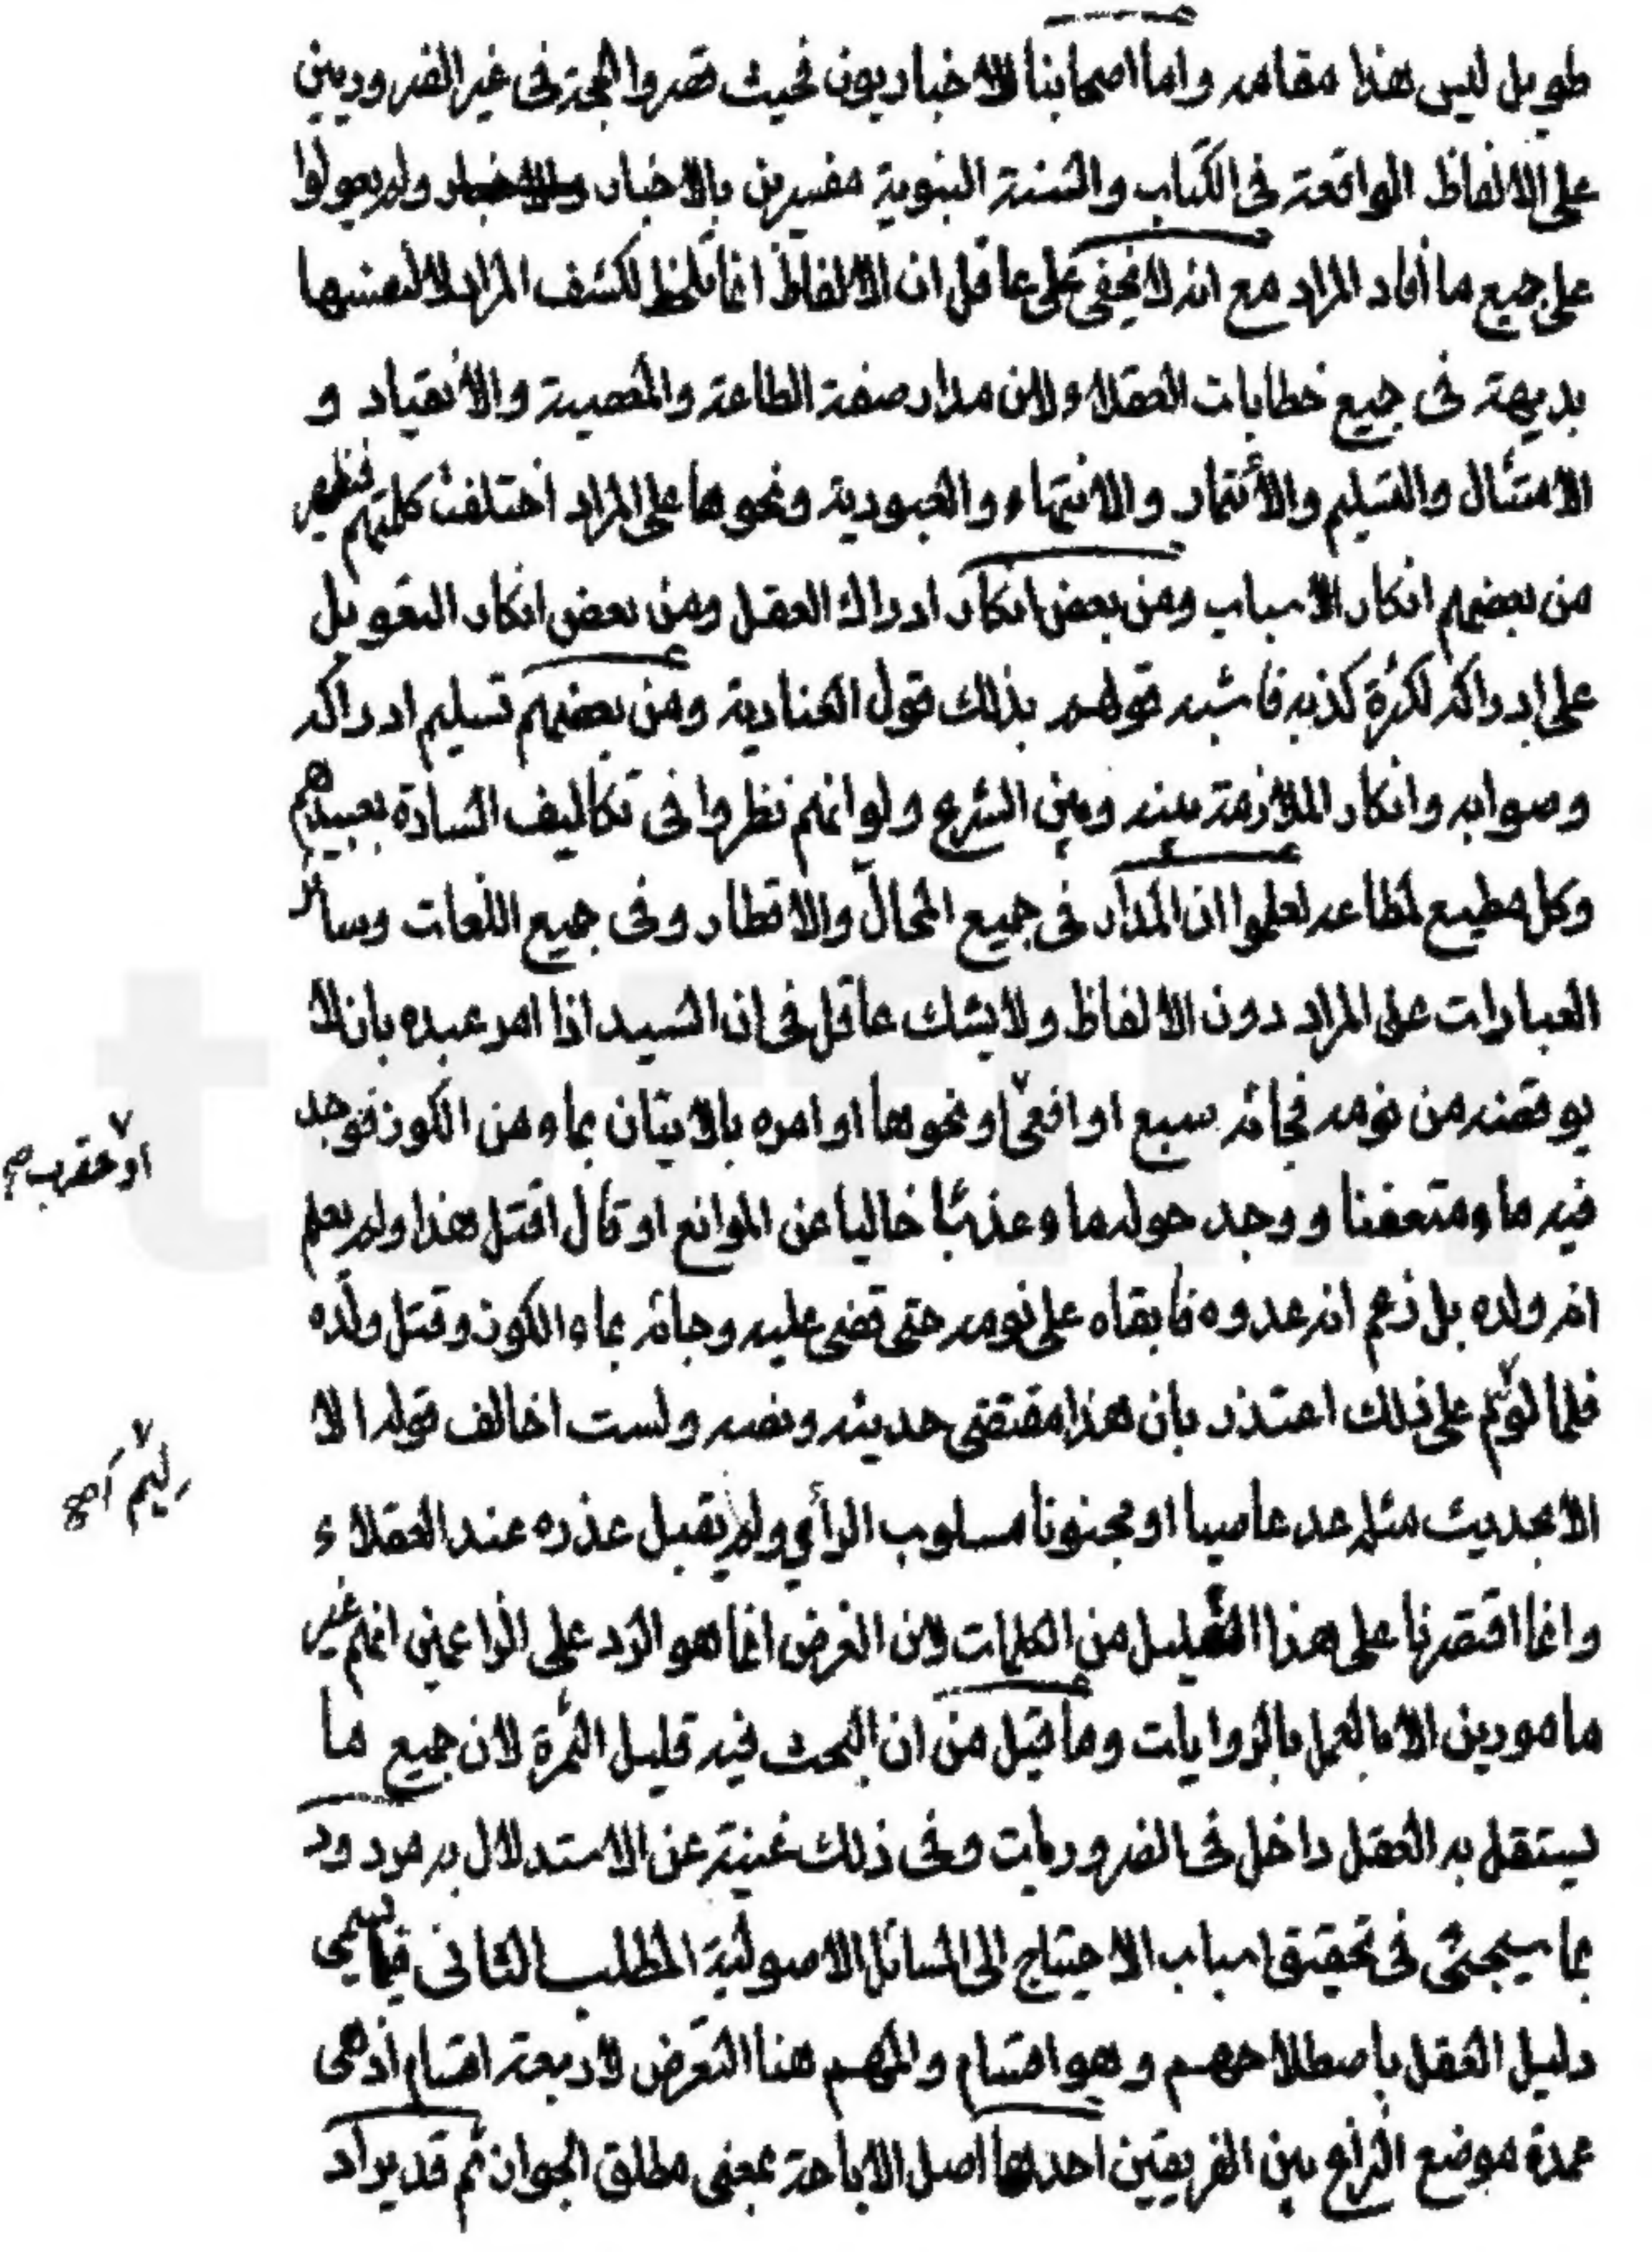 طويل ليس هذا مقامه واما اصحابنا الاخباريون فحيث قصروا الحجة في غير الضروريين
على الالفاظ الواقعة في الكتاب والسنة النبوية مفسرين بالاخبار ولم يعولوا
على جميع ما افاد المراد مع انه لا يخفى على عاقل ان الالفاظ انما تلحظ لكشف المراد لا لنفسها
بديهة في جميع خطابات العقلاء ولان مدار صفة الطاعة والمعصية والانقياد و
الامتثال والتسليم والائتمار والانتهاء والعبودية ونحوها على المراد اختلفت كلمتهم فظهر
من بعضهم انكار الاسباب ومن بعض انكار ادراك العقل ومن بعض انكار التعويل
على ادراكه لكثرة كذبه فاشبه قولهم بذلك قول العنادية ومن بعضهم تسليم ادراكه
وصوابه وانكار الملازمة بينه وبين الشرع ولو انهم نظروا في تكاليف السادة بعبيدهم
وكل مطيع لمطاعه لعلموا ان المدار في جميع المحال والاقطار وفي جميع اللغات وسائر
العبارات على المراد دون الالفاظ ولا يشك عاقل في ان السيد اذا امر عبده بان لا
يوقضه من نومه فجائه سبع او افعى او نحوها او امره بالاتيان بماء من الكوز فوجد
او عقرب صح
فيه ماء متعفنا ووجد حوله ماء عذبا خاليا عن الموانع او قال اقتل هذا ولم يعلم
انه ولده بل زعم انه عدوه فابقاه على نومه حتى قضى عليه وجائه بماء الكوز وقتل ولده
فلما لؤم على ذلك اعتذر بان هذا مقتضى حديثه ونصه ولست اخالف قوله الا
ليم
الا بحديث مثله عد عاصيا او مجنونا مسلوب الرأي ولم يقبل عذره عند العقلاء
وانما اقتصرنا على هذا القليل من الكلمات لان الغرض انما هو الرد على الزاعمين انهم غير
مامورين الا بالعمل بالروايات وما قيل من ان البحث فيه قليل الثمرة لان جميع ما
يستقل به العقل داخل في الضروريات وفي ذلك غنية عن الاستدلال به مردود
بما سيجئ في تحقيق اسباب الاحتياج الى المسائل الاصولية المطلب الثاني فيما يسمى
دليل العقل باصطلاحهم وهو اقسام والمهم هنا التعرض لاربعة اقسام اذ هي
عمدة موضع النزاع بين الفريقين احدها اصل الاباحة بمعنى مطلق الجواز ثم قد يراد